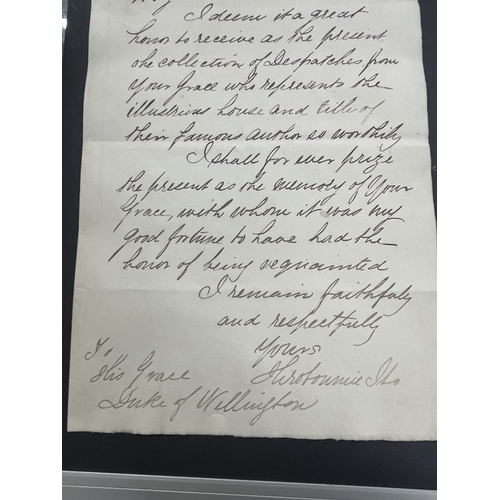 I deem it a great
honor to receive as the present
the collection of Despatches from
Your Grace who represents the
illustrious house and title of
their famous author so worthily
I shall for ever prize
the present as the memory of Your
Grace, with whom it was my
good fortune to have had the
honor of being acquainted
I remain faithfully
and respectfully
Yours
Hirobumie Ito
To
His Grace
Duke of Wellington